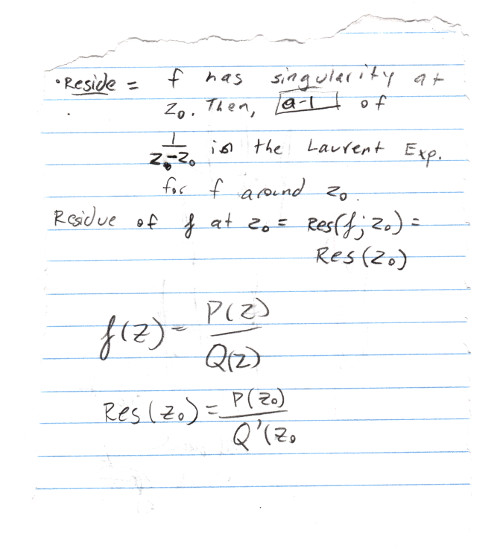 •Reside = f has singularity at
z₀. Then, a-1 of
1/(z-z₀) in the Laurent Exp.
for f around z₀.
Residue of f at z₀ = Res(f; z₀) =
Res(z₀)
f(z) = P(z)/Q(z)
Res(z₀) = P(z₀)/Q'(z₀